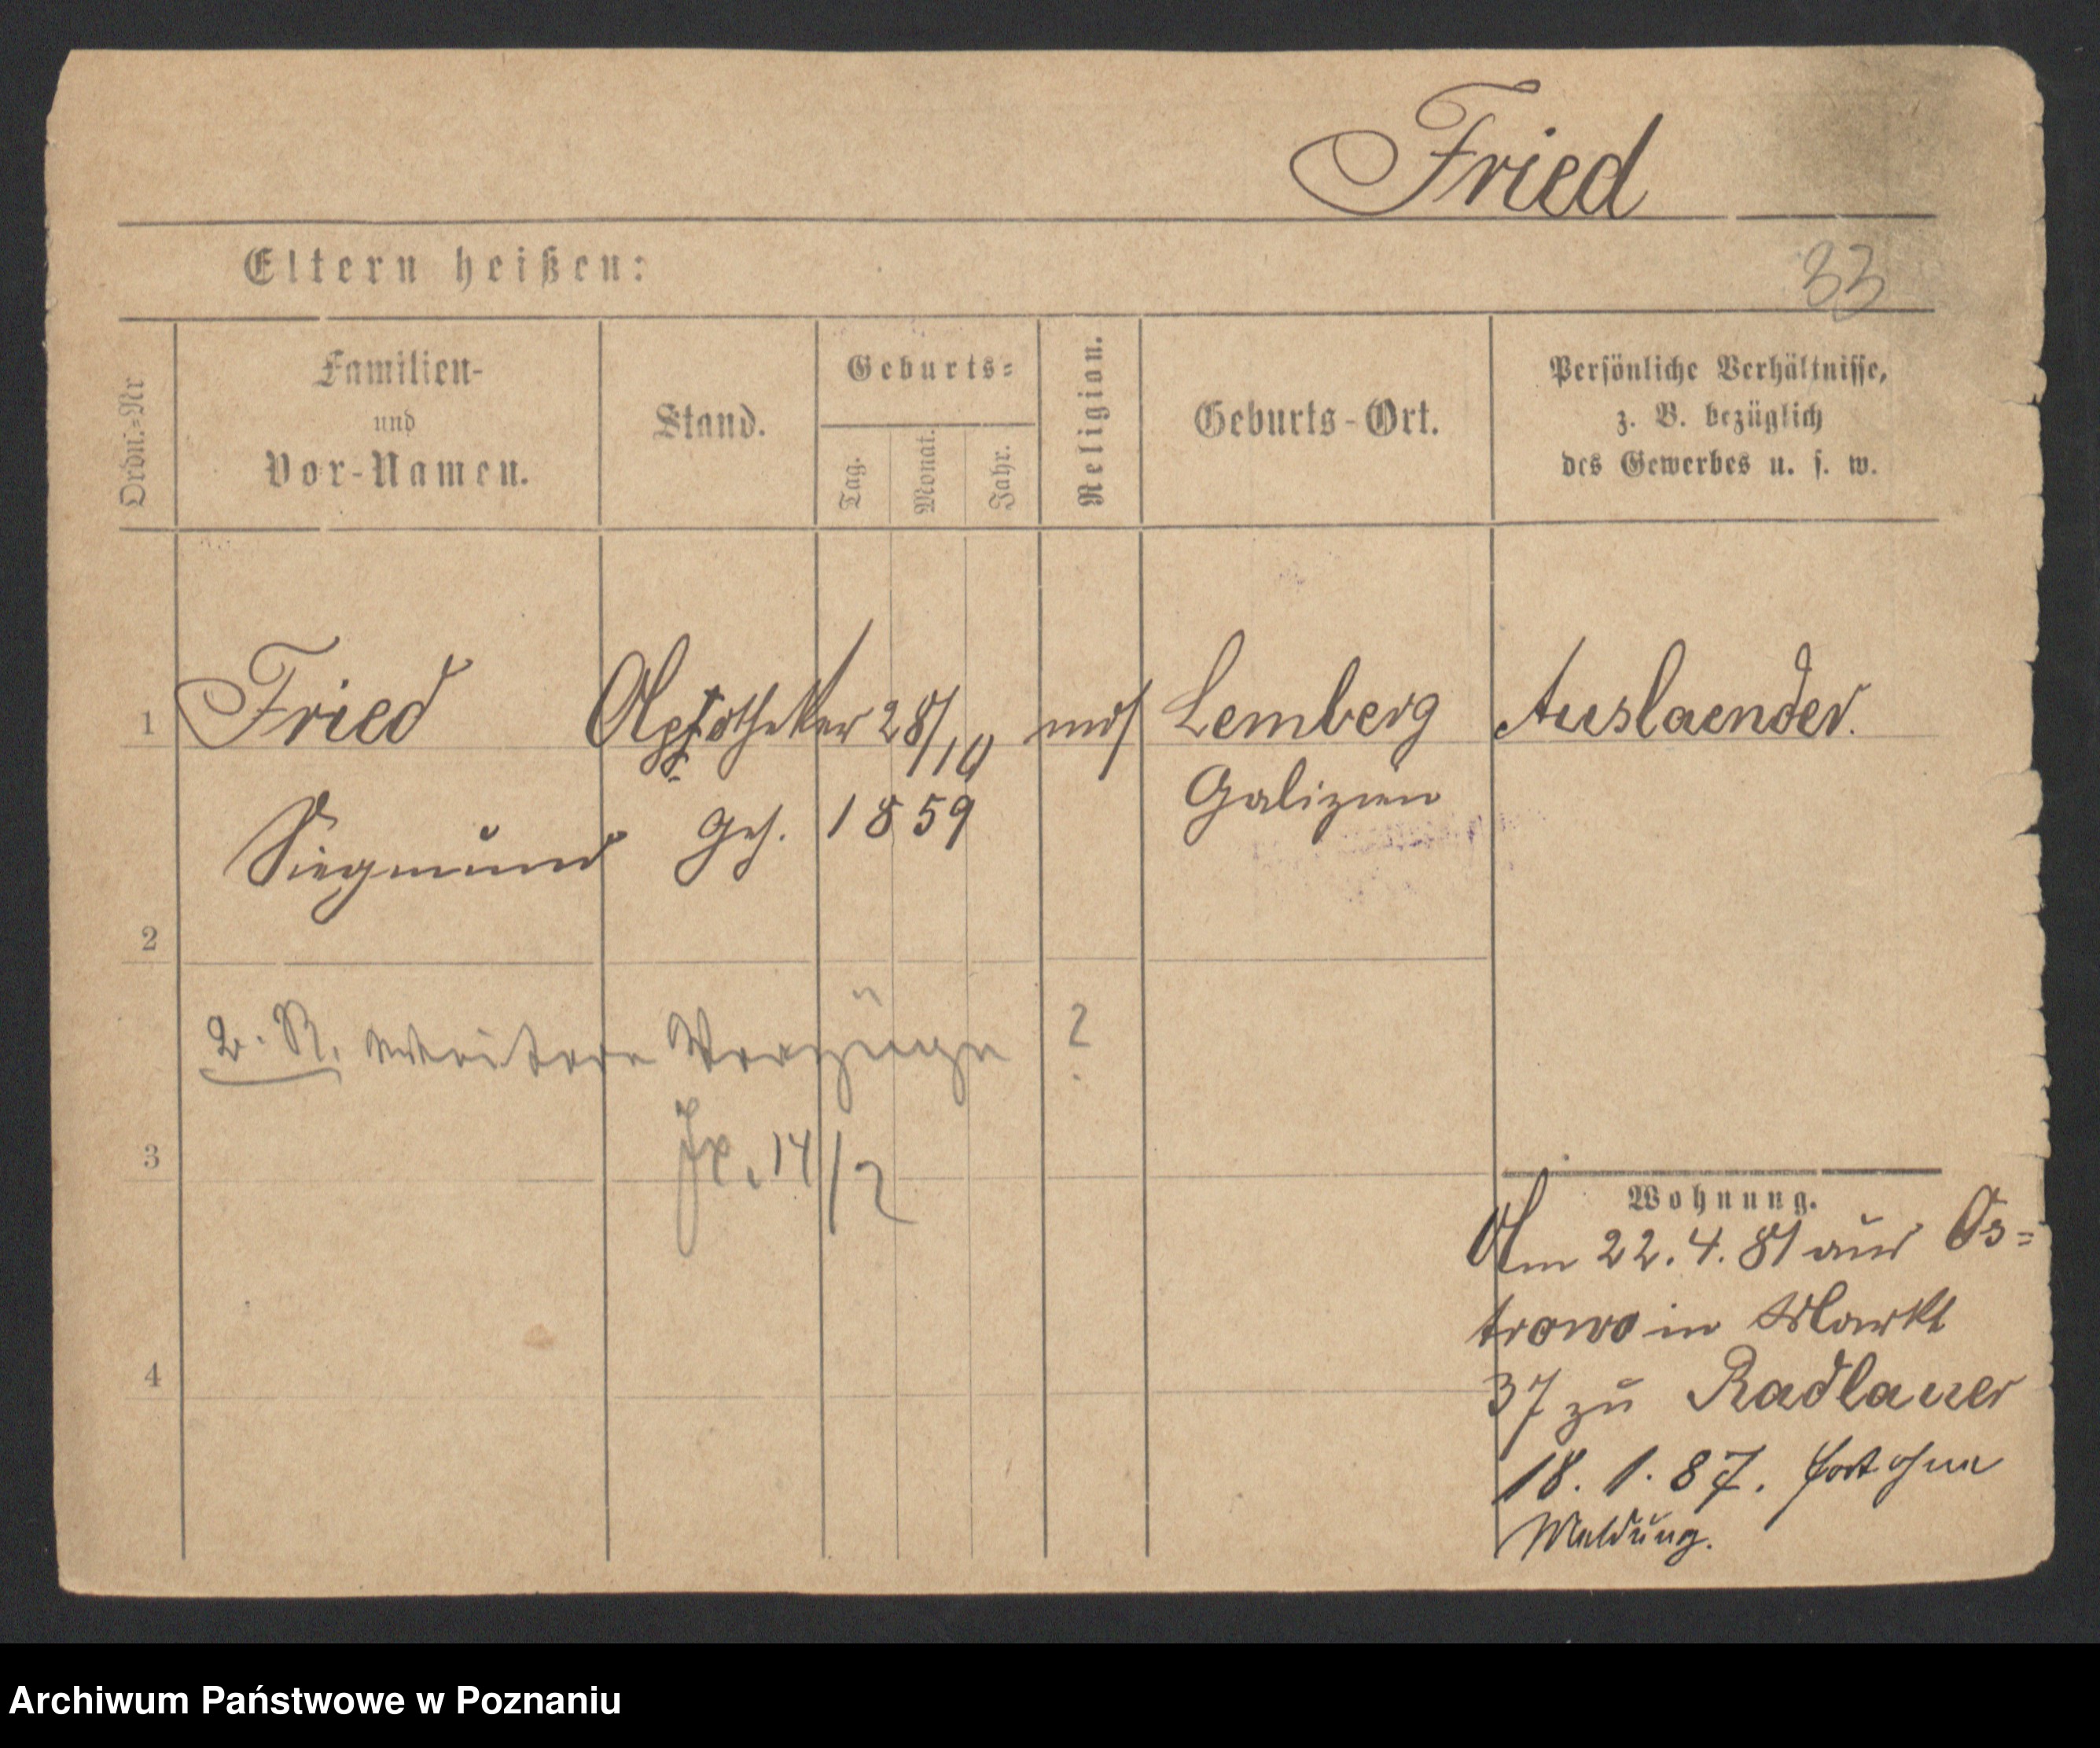 Fried
Eltern heißen:
33
Ordn.-Nr
Familien-
und
Vor-Namen.
Stand.
Geburts-
Tag.
Monat.
Jahr.
Religion.
Geburts-Ort.
Persönliche Verhältnisse,
z. B. bezüglich
des Gewerbes u. s. w.
1 Fried Apotheker 28/10 mos Lemberg Auslaender.
Siegmund Geh. 1859 Galizien
2
weitere Verzüge ?
3
14/2
Wohnung.
Am 22.4.81 aus Os=
trowo in Markt
4
37 zu Radlauer
18. 1. 87. fort ohne
Meldung.
Archiwum Państwowe w Poznaniu